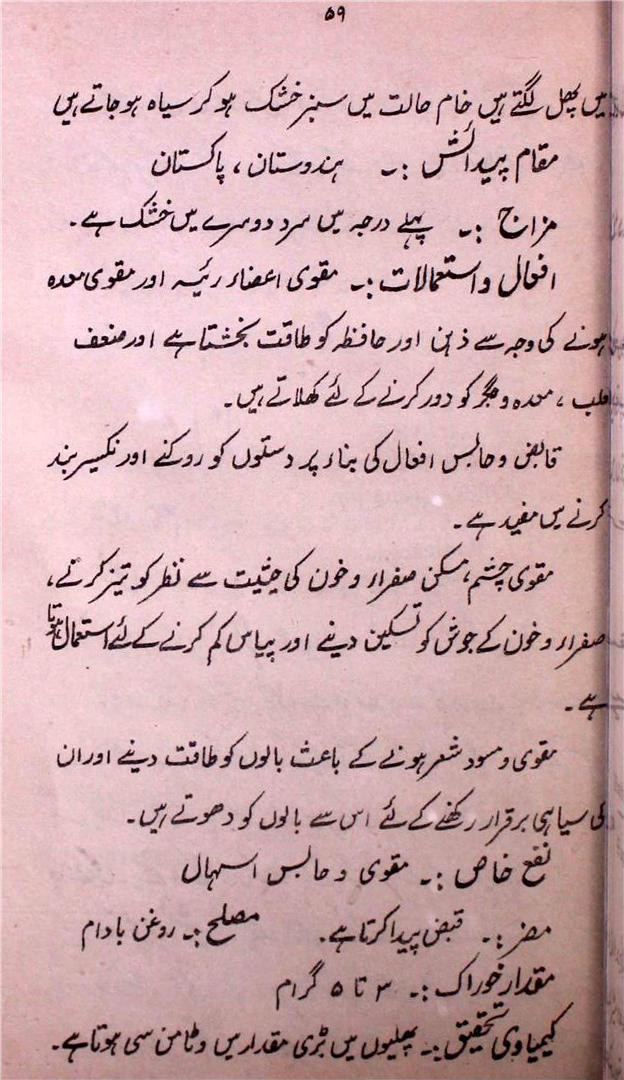 ۵۹
میں پھل لگتے ہیں خام حالت میں سبز خشک ہو کر سیاہ ہو جاتے ہیں
مقام پیدائش :۔ ہندوستان ، پاکستان
مزاج :۔ پہلے درجہ میں سرد دوسرے میں خشک ہے۔
افعال و استعمالات :۔ مقوی اعضاء رئیسہ اور مقوی معدہ
ہونے کی وجہ سے ذہن اور حافظہ کو طاقت بخشتا ہے اور ضعف
قلب ، معدہ و جگر کو دور کرنے کے لئے کھلاتے ہیں۔
قابض و حابس افعال کی بناء پر دستوں کو روکنے اور نکسیر بند
کرنے میں مفید ہے۔
مقوی چشم، مسکن صفراء و خون کی حیثیت سے نظر کو تیز کرنے،
صفراء و خون کے جوش کو تسکین دینے اور پیاس کم کرنے کے لئے استعمال ہوتا
ہے۔
مقوی و مسود شعر ہونے کے باعث بالوں کو طاقت دینے اور ان
کی سیاہی برقرار رکھنے کے لئے اس سے بالوں کو دھوتے ہیں۔
نفع خاص :۔ مقوی و حابس اسہال
مضر :۔ قبض پیدا کرتا ہے۔ مصلح :۔ روغن بادام
مقدار خوراک :۔ ۳ تا ۵ گرام
کیمیاوی تحقیق :۔ پھلیوں میں بڑی مقدار میں وٹامن سی ہوتا ہے۔